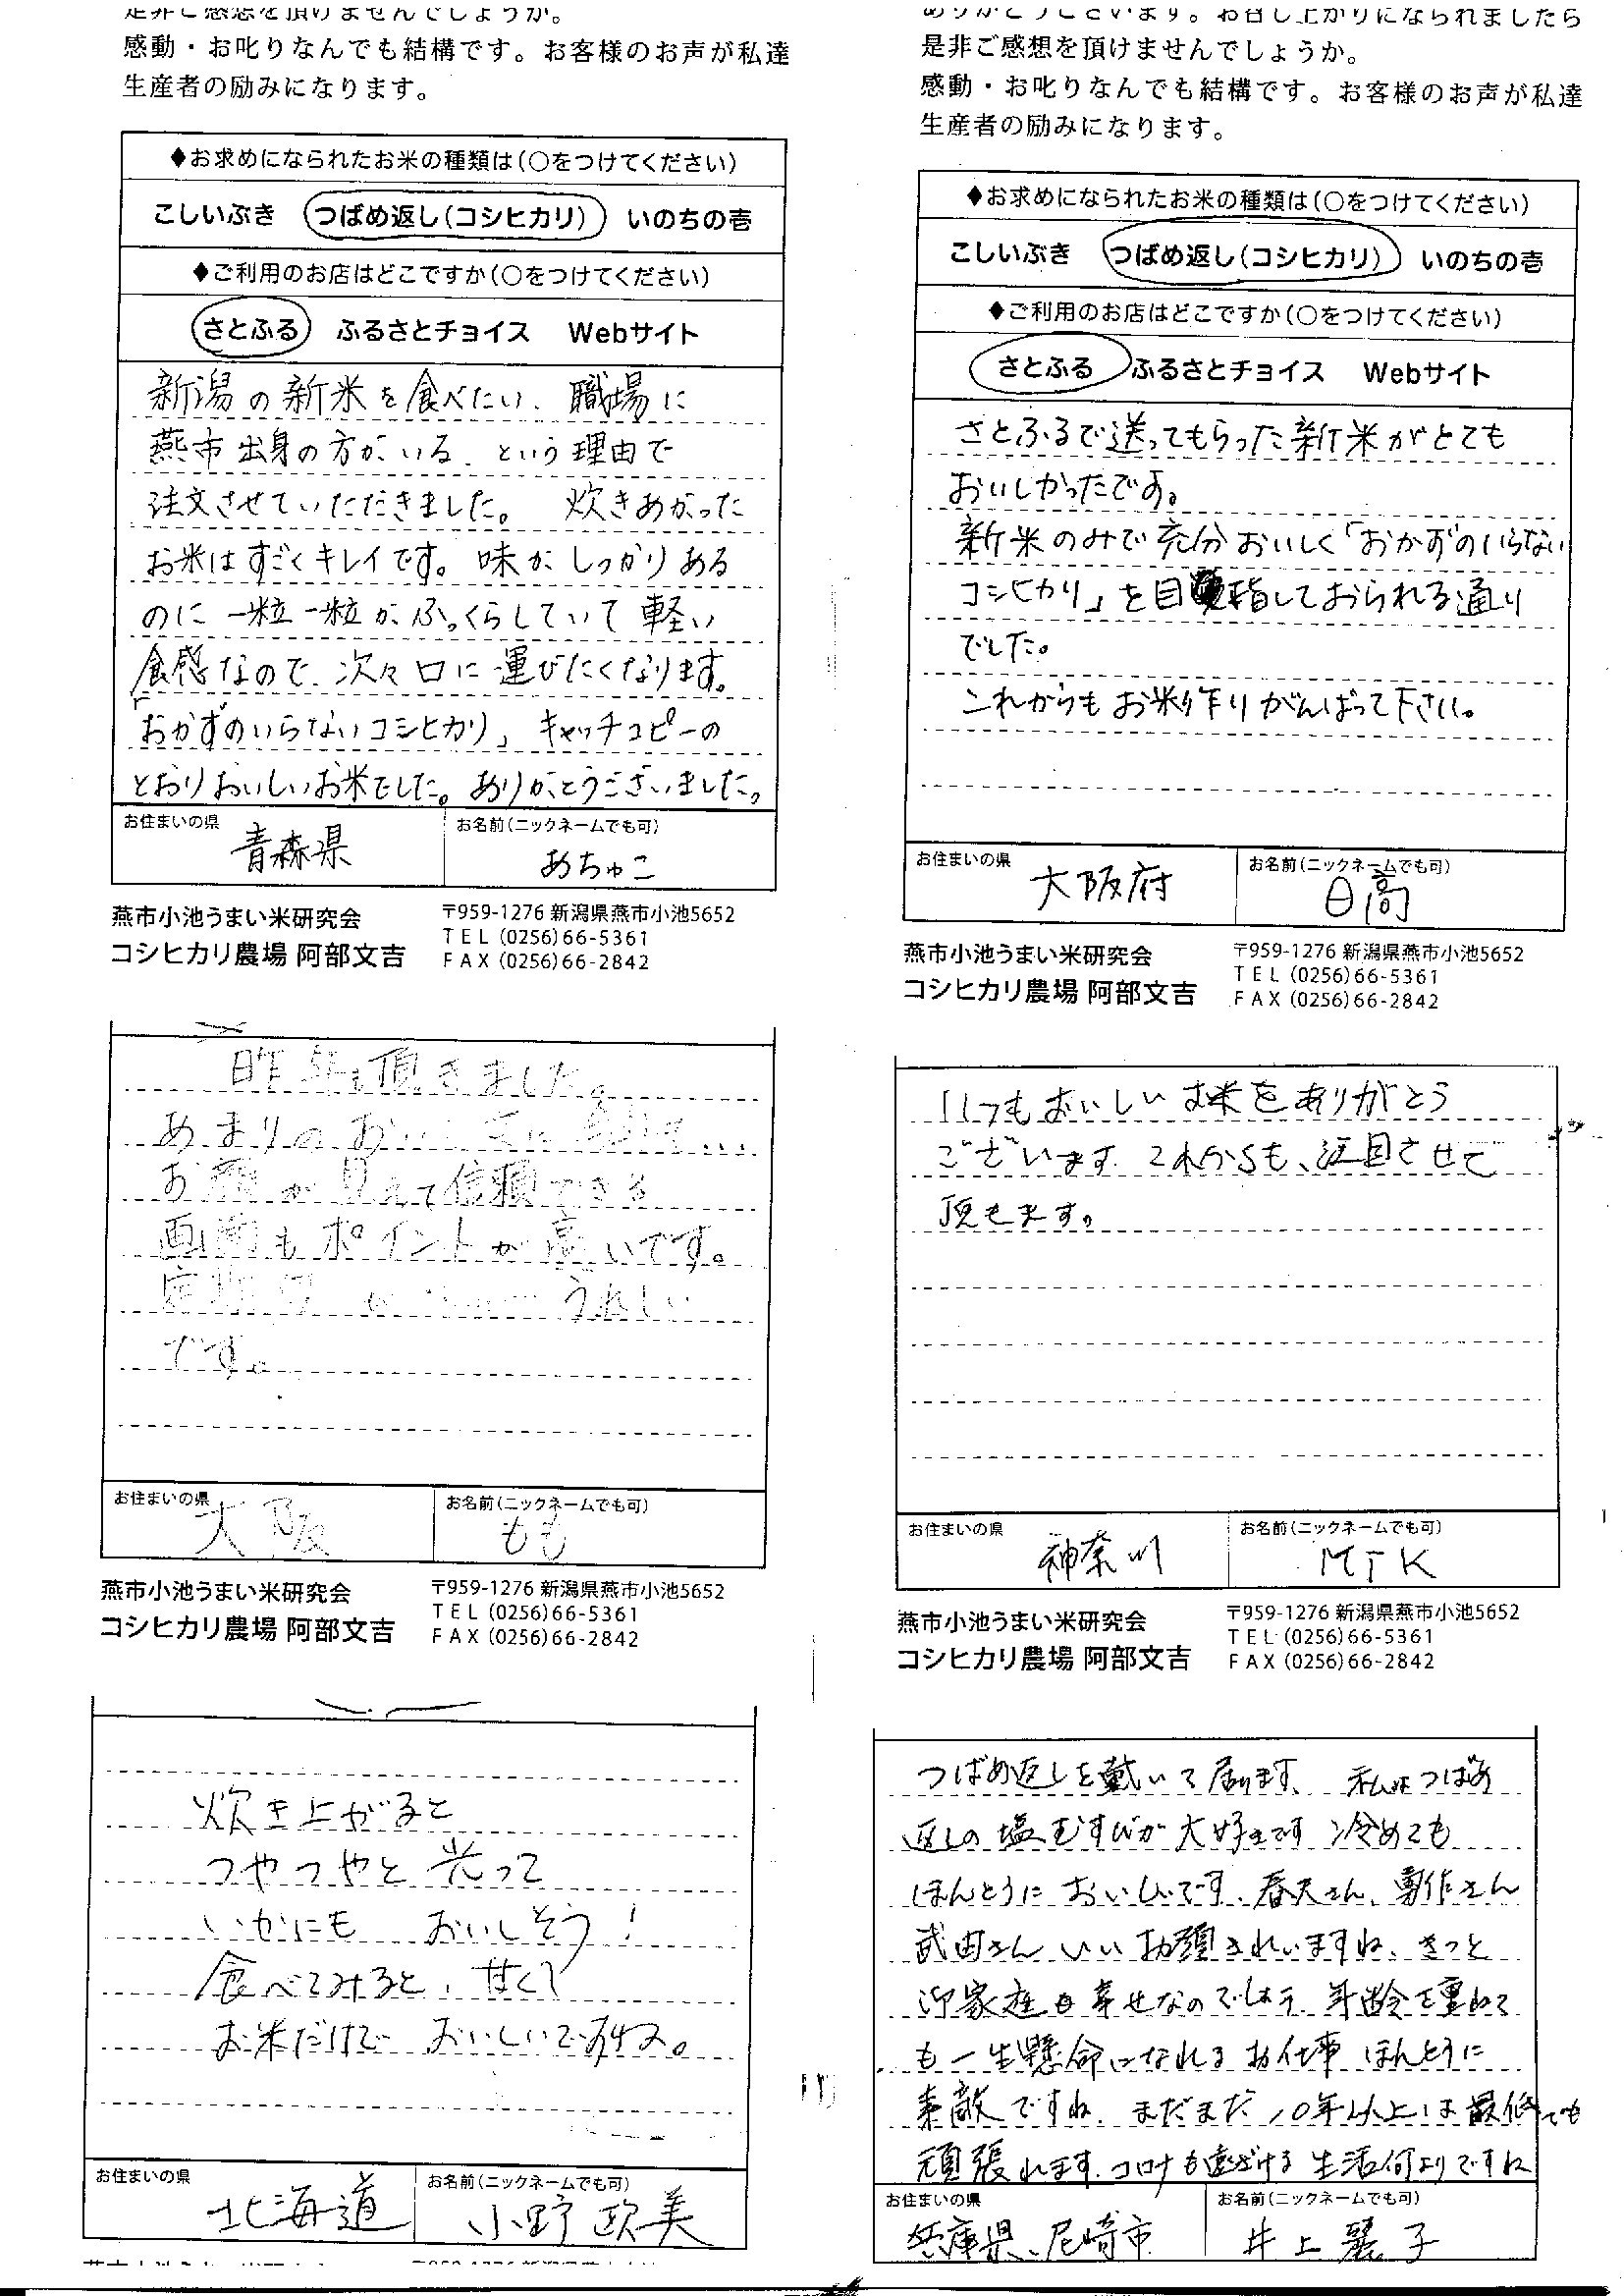 是非ご感想を頂けませんでしょうか。
感動・お叱りなんでも結構です。お客様のお声が私達
生産者の励みになります。
◆お求めになられたお米の種類は(○をつけてください)
こしいぶき つばめ返し(コシヒカリ) いのちの壱
◆ご利用のお店はどこですか(○をつけてください)
さとふる ふるさとチョイス Webサイト
新潟の新米を食べたい、職場に
燕市出身の方がいる、という理由で
注文させていただきました。 炊きあがった
お米はすごくキレイです。味がしっかりある
のに一粒一粒がふっくらしていて軽い
食感なので、次々口に運びたくなります。
「おかずのいらないコシヒカリ」キャッチコピーの
とおりおいしいお米でした。ありがとうございました。
お住まいの県 青森県
お名前(ニックネームでも可) あちゅこ
燕市小池うまい米研究会
コシヒカリ農場 阿部文吉
〒959-1276 新潟県燕市小池5652
TEL (0256)66-5361
FAX (0256)66-2842
ありがとうございます。お召し上がりになられましたら
是非ご感想を頂けませんでしょうか。
感動・お叱りなんでも結構です。お客様のお声が私達
生産者の励みになります。
◆お求めになられたお米の種類は(○をつけてください)
こしいぶき つばめ返し(コシヒカリ) いのちの壱
◆ご利用のお店はどこですか(○をつけてください)
さとふる ふるさとチョイス Webサイト
さとふるで送ってもらった新米がとても
おいしかったです。
新米のみで充分おいしく「おかずのいらない
コシヒカリ」を目指しておられる通り
でした。
これからもお米作りがんばって下さい。
お住まいの県 大阪府
お名前(ニックネームでも可) 日高
燕市小池うまい米研究会
コシヒカリ農場 阿部文吉
〒959-1276 新潟県燕市小池5652
TEL (0256)66-5361
FAX (0256)66-2842
昨年も頂きました。
あまりのおいしさに
お顔が見えて信頼できる
画面もポイントが高いです。
うれしい
です。
お住まいの県 大阪
お名前(ニックネームでも可) もも
燕市小池うまい米研究会
コシヒカリ農場 阿部文吉
〒959-1276 新潟県燕市小池5652
TEL (0256)66-5361
FAX (0256)66-2842
いつもおいしいお米をありがとう
ございます。これからも、注目させて
頂きます。
お住まいの県 神奈川
お名前(ニックネームでも可) MTK
燕市小池うまい米研究会
コシヒカリ農場 阿部文吉
〒959-1276 新潟県燕市小池5652
TEL (0256)66-5361
FAX (0256)66-2842
炊き上がると
つやつやと光って
いかにも おいしそう!
食べてみると、甘くて
お米だけで おいしいですね。
お住まいの県 北海道
お名前(ニックネームでも可) 小野 欧美
つばめ返しを戴いて居ります、私はつばめ
返しの塩むすびが大好きです 冷めても
ほんとうにおいしいです、春夫さん、専作さん
武由さん いいお顔されいますね、きっと
御家庭も幸せなのでしょう 年齢を重ねて
も一生懸命になれるお仕事 ほんとうに
素敵ですね、まだまだ10年以上は最低でも
頑張れます、コロナも遠ざける生活何よりですね
お住まいの県 兵庫県、尼崎市
お名前(ニックネームでも可) 井上麗子